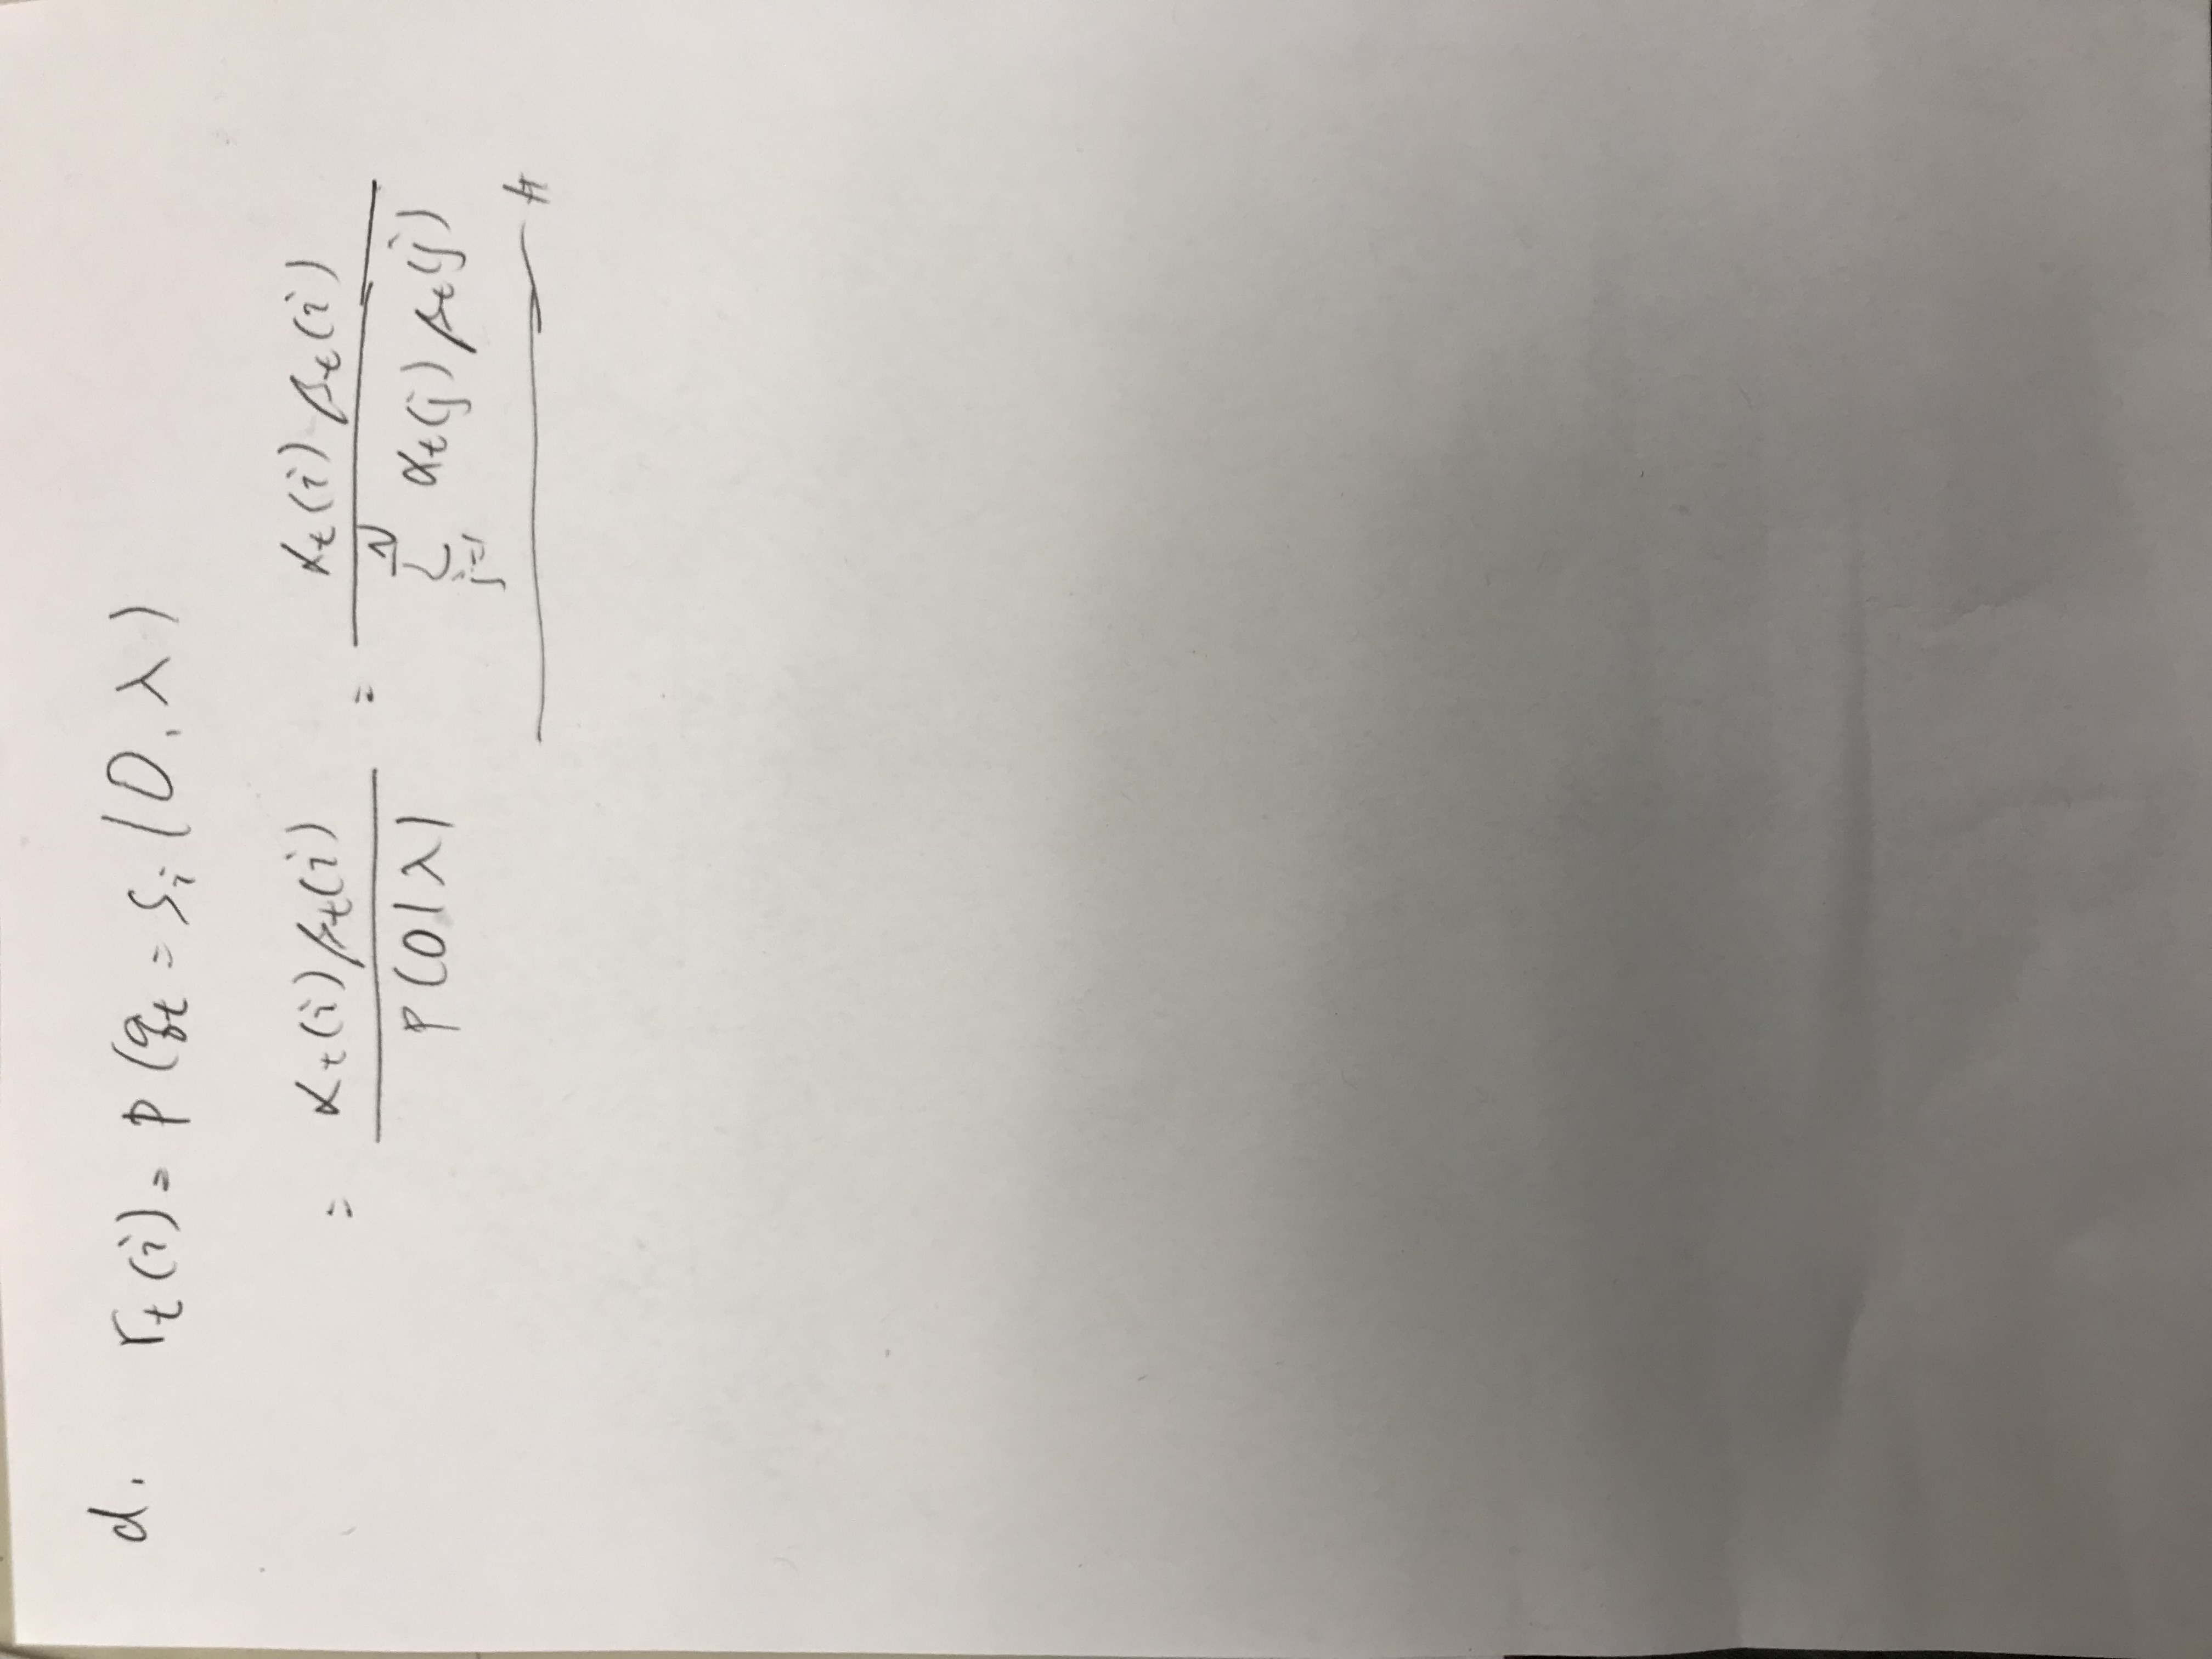 d. r_t(i) = P(q_t = S_i | O, λ)
= α_t(i) β_t(i) / P(O|λ) = α_t(i) β_t(i) / Σ_{j=1}^{N} α_t(j) β_t(j)
#